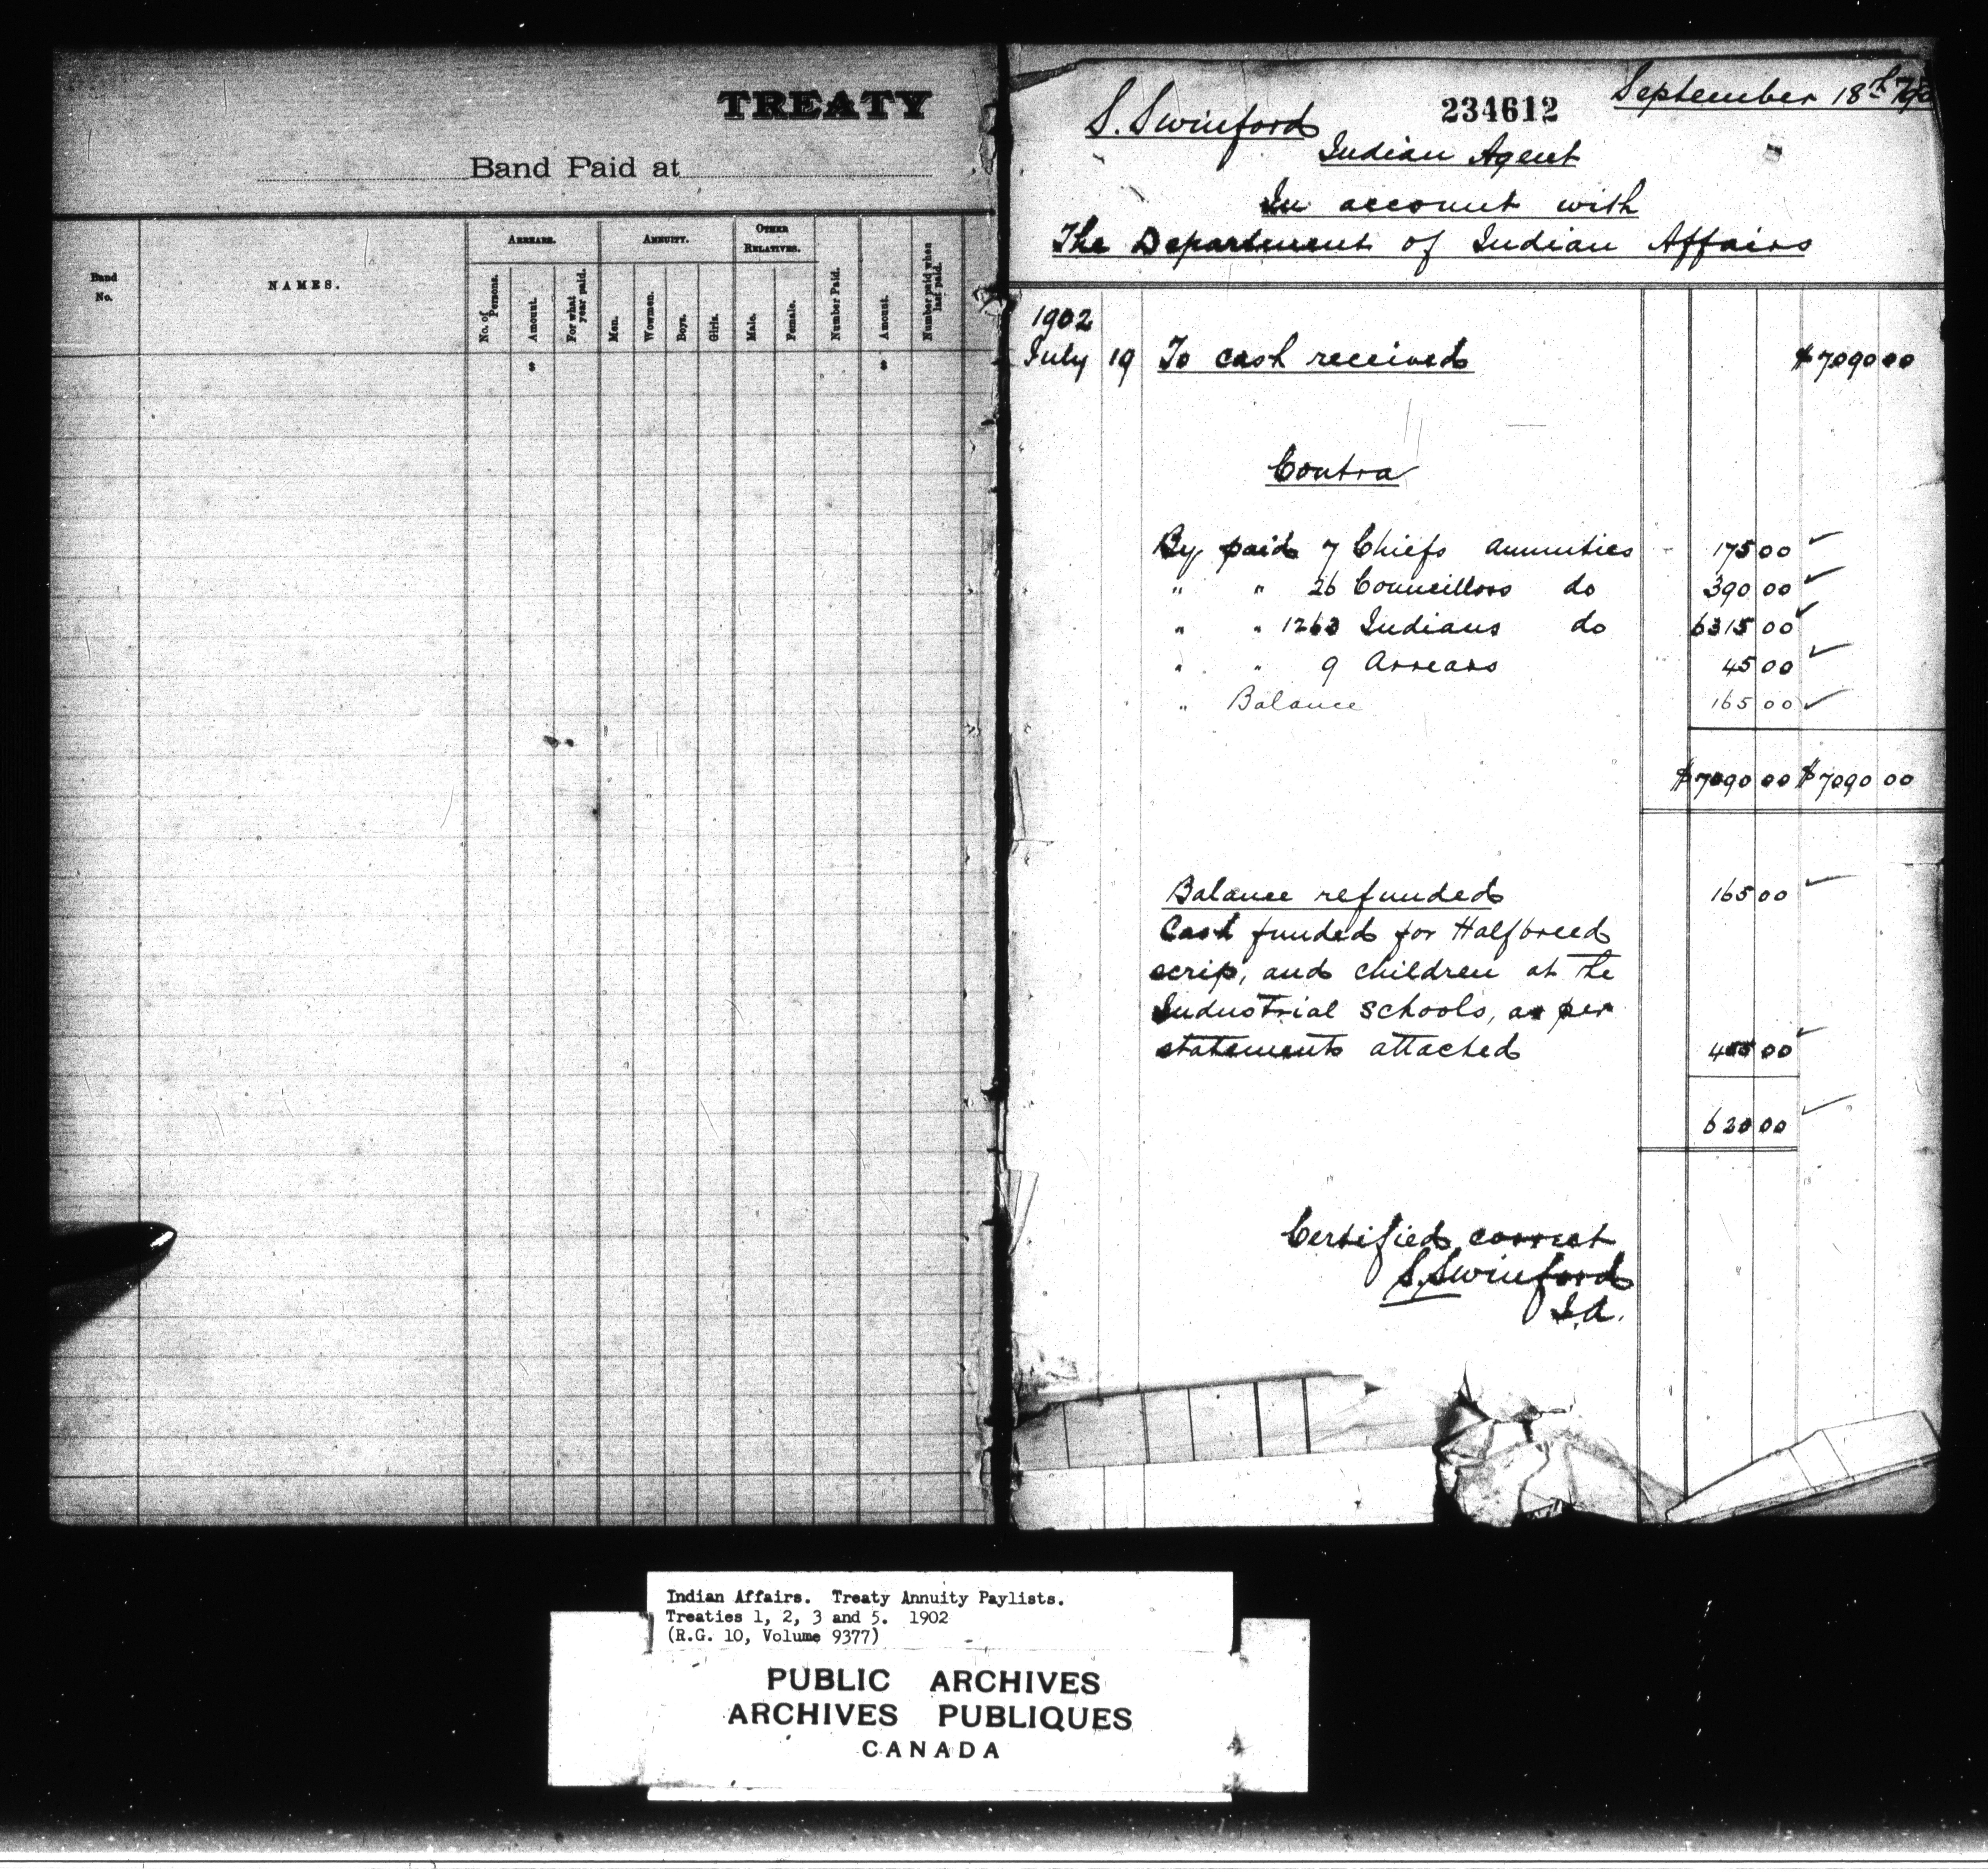 TREATY
Band Paid at
Band No.
NAMES.
ARREARS.
No. of Persons.
Amount.
For what year paid.
ANNUITY.
Men.
Wowmen.
Boys.
Girls.
OTHER RELATIVES.
Male.
Female.
Number Paid.
Amount.
Number paid when last paid.
$ $
September 18th
234612
S. Swinford
Indian Agent
In account with
The Department of Indian Affairs
1902
July 19 To cash received $7090 00
Contra
By paid 7 Chiefs annuities 175 00
" " 26 Councillors do 390 00
" " 1263 Indians do 6315 00
" " 9 Arrears 45 00
" Balance 165 00
$7090 00 $7090 00
Balance refunded 165 00
Cash funded for Halfbreed
scrip, and children at the
Industrial schools, as per
statements attached 455 00
620 00
Certified correct
S. Swinford
I.A.
Indian Affairs. Treaty Annuity Paylists.
Treaties 1, 2, 3 and 5. 1902
(R.G. 10, Volume 9377)
PUBLIC ARCHIVES
ARCHIVES PUBLIQUES
CANADA